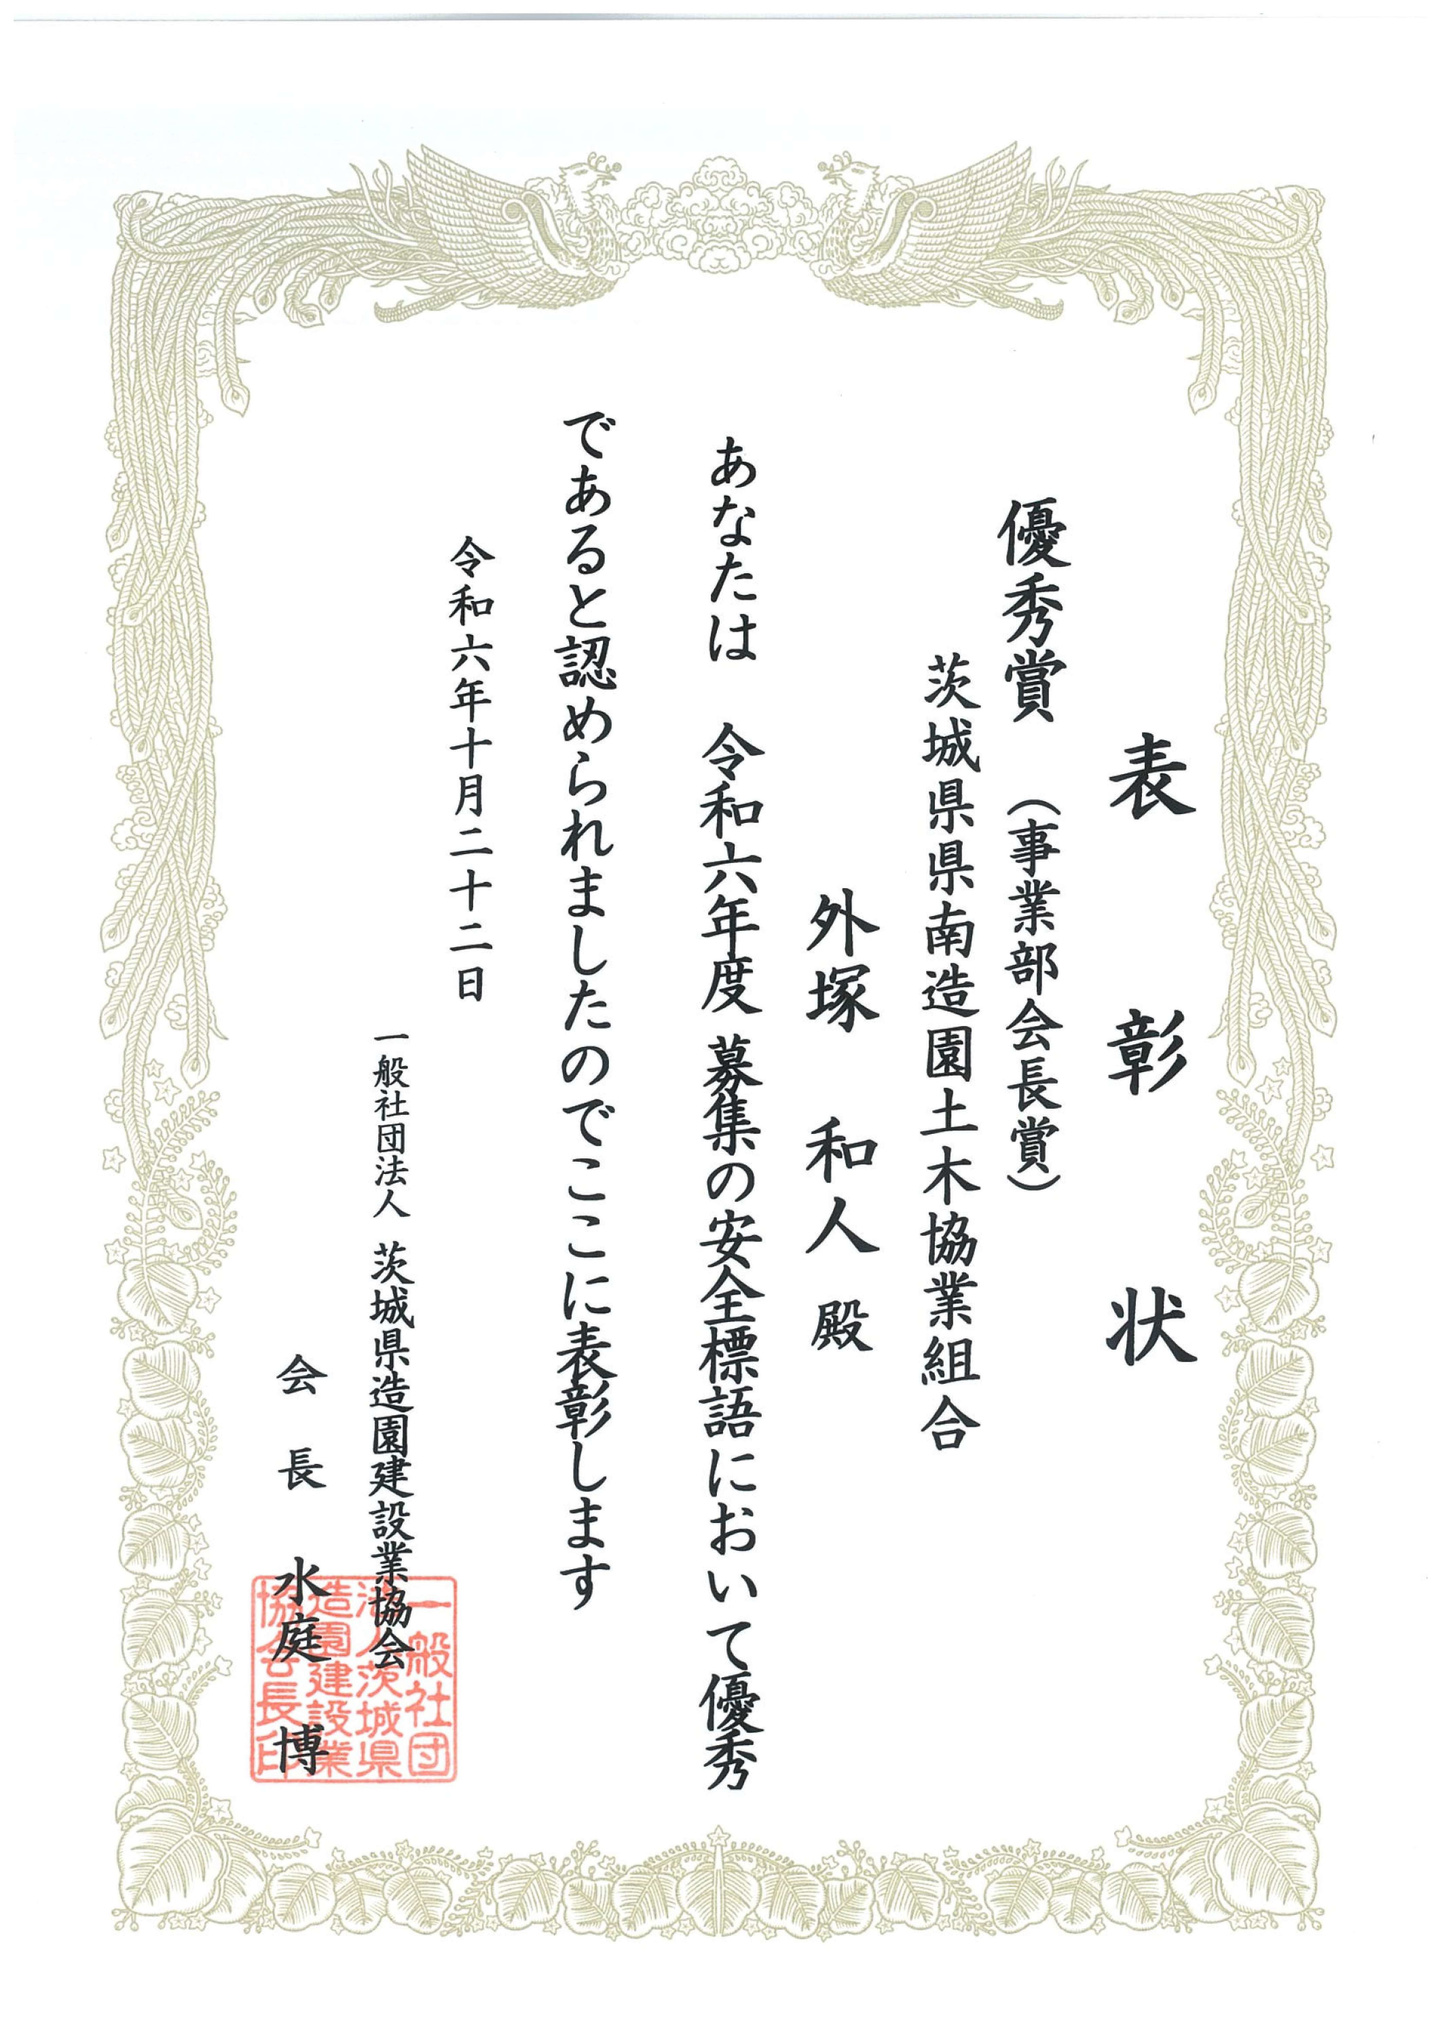 表彰状
優秀賞 （事業部会長賞）
茨城県県南造園土木協業組合
外塚 和人 殿
あなたは 令和六年度 募集の安全標語において優秀
であると認められましたのでここに表彰します
令和六年十月二十二日
一般社団法人 茨城県造園建設業協会
会長 水庭 博
一般社団
法人茨城県
造園建設業
協会長印